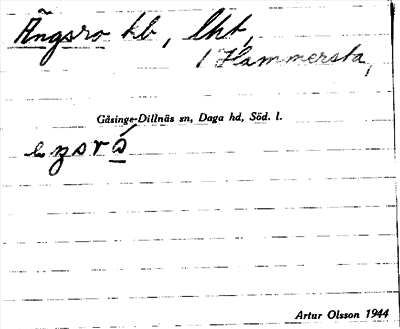 Ängsro hb, lht,
/ Hammersta,
Gåsinge-Dillnäs sn, Daga hd, Söd. l.
ezsró
Artur Olsson 1944